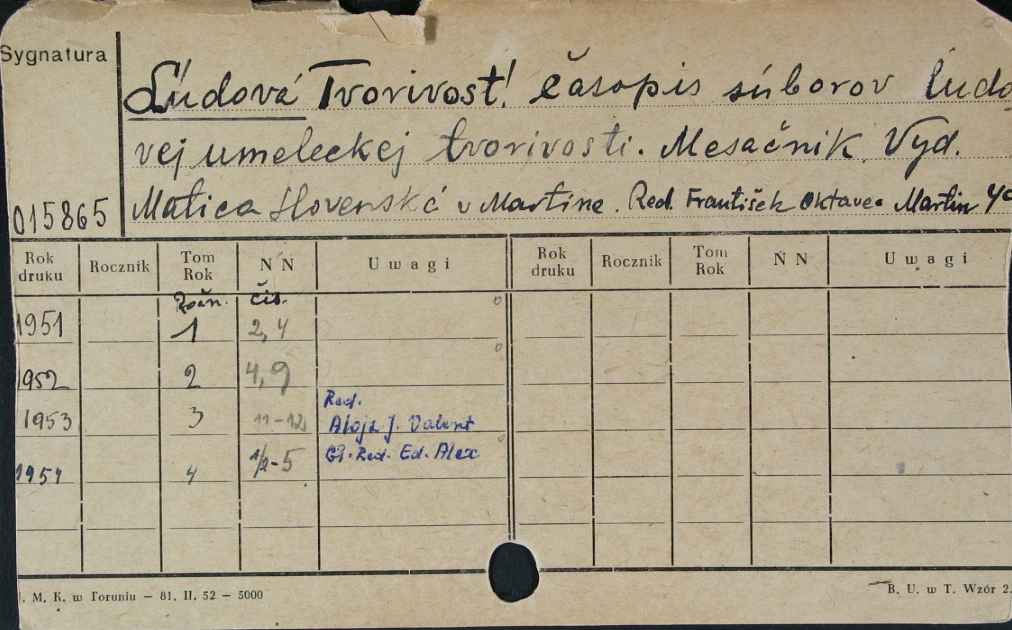 Sygnatura
Ľúdová Tvorivosť! Časopis súborov ľudo
vej umeleckej tvorivosti. Mesačník. Vyd.
015865 Matica Slovenská v Martine. Red. František Oktavec Martin
Rok druku Rocznik Tom Rok N N Uwagi Rok druku Rocznik Tom Rok N N Uwagi
Ročn. čis.
1951 1 2, 4
1952 2 4, 9
Red.
1953 3 11-12 Alojz J. Valent
1954 4 1/2-5 Gl. Red. Ed. Alex
M. K. w Toruniu — 81. II. 52 — 5000 B. U. w T. Wzór 2.